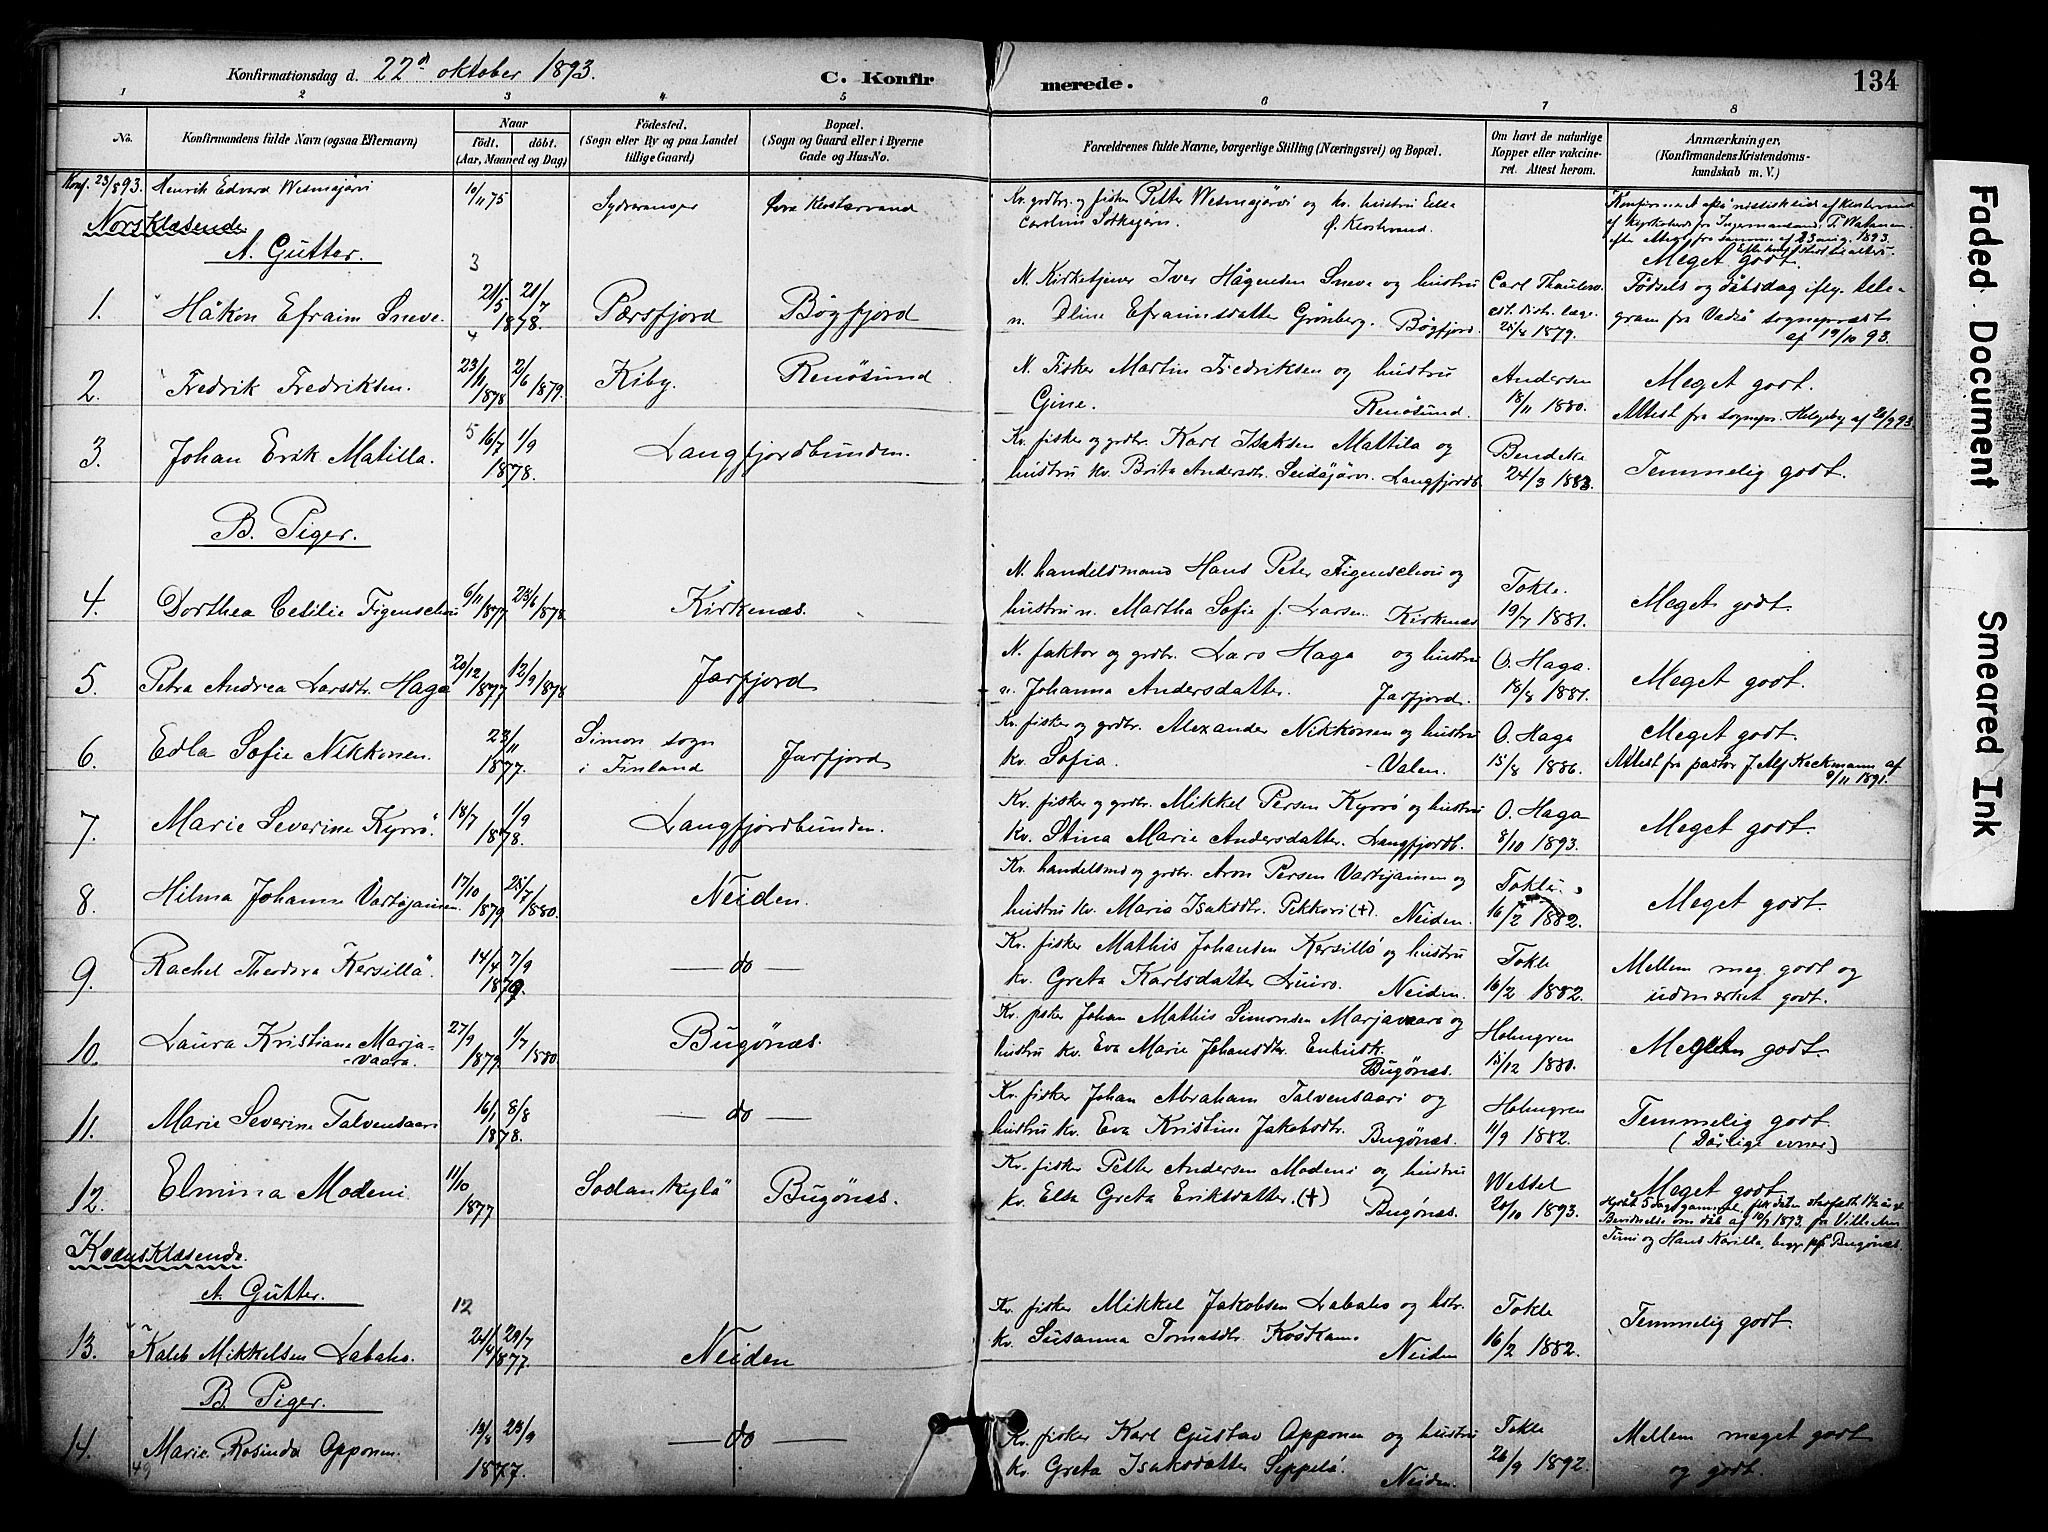 Konfirmationsdag d. 22d oktober 1893. C. Konfirmerede. 134
1 2 3 4 5 6 7 8
No. Konfirmandens fulde Navn (ogsaa Efternavn) Naar födt. döbt. (Aar, Maaned og Dag) Födested. (Sogn eller By og paa Landet tillige Gaard) Bopæl. (Sogn og Gaard eller i Byerne Gade og Hus-No. Forældrenes fulde Navne, borgerlige Stilling (Næringsvei) og Bopæl. Om havt de naturlige Kopper eller vakcineret. Attest herom. Anmærkninger, (Konfirmandens Kristendomskundskab m. V.)
Konf. 23/8 93. Henrik Edvard Wesmajärvi 10/11 75 Sydvaranger Øvre Klostervand Kv. grdbr. og fisker Petter Wesmajärvi og kv. hustru Elsa
Carolina Sotkajärvi Ø. Klostervand.
Norsklæsende
A. Gutter.
1. Håkon Efraim Sneve. 21/5 21/7 1878. Persfjord Bøgfjord N. Kirketjener Iver Hågensen Sneve og hustru
n. Oline Efraimsdatter Grønberg. Bøgfjord. Carl Thaulow est. distr. læge 25/8 1879. Meget godt.
Fødsels og dåbsdag iflg. telegram fra Vadsø sogneprest af 19/10 93.
2. Fredrik Fredriksen. 23/11 1878 2/6 1879. Kiby. Renøsund N. Fisker Martin Fredriksen og hustru
Gine. Renøsund. Andersen 18/11 1880. Meget godt.
Attest fra sognepr. Helgeby af 20/9 93.
3. Johan Erik Matilla. 16/7 1/9 1878. Langfjordbunden. Kv. fisker og grdbr. Karl Isaksen Mattila og
hustru kv. Brita Andersdtr. Seidajärvi. Langfjordb. Bendeke 24/3 1883. Temmelig godt.
B. Piger.
4. Dorthea Cecilie Figenschou 6/11 1877 23/6 1878. Kirkenæs. N. handelsmand Hans Peter Figenschou og
hustru n. Martha Sofie f. Larsen. Kirkenæs Tokle. 19/7 1881. Meget godt.
5. Petra Andrea Larsdtr. Haga 20/12 1877 12/9 1878 Jarfjord N. faktor og grdbr. Lars Haga og hustru
n. Johanna Andersdatter. Jarfjord. O. Haga. 18/8 1881. Meget godt.
6. Edla Sofie Nikkonen. 23/11 1877. Simon sogn i Finland Jarfjord Kv. fisker og grdbr. Alexander Nikkonen og hustru
kv. Sofia. Valen. O. Haga 15/8 1886. Meget godt.
Attest fra pastor J. Alf. Keckmann af 9/11 1891.
7. Marie Severine Kyrrö. 18/7 1/9 1878. Langfjordbunden. Kv. fisker og grdbr. Mikkel Persen Kyrrö og hustru
kv. Stina Maria Andersdatter. Langfjordb. O. Haga 8/10 1893. Meget godt.
8. Hilma Johanne Vartijainen. 17/10 1879 25/7 1880. Neiden. Kv. handelsmd og grdbr. Aron Persen Vartijainen og
hustru kv. Maria Isaksdtr. Pekkari (+). Neiden. Tokle. 16/2 1882. Meget godt.
9. Rachel Theodora Kersillö. 14/4 7/9 1879. — do — Kv. fisker Mathis Johansen Kersillö og hustru
kv. Greta Karlsdatter Luiro. Neiden. Tokle 16/2 1882. Mellem meg. godt og
udmærket godt.
10. Laura Kristiane Marjavaara. 27/9 1879. 1/7 1880. Bugønæs. Kv. fisker Johan Mathis Simonsen Marjavaara og
hustru kv. Eva Marie Johansdtr. Bugønæs. Holmgren 15/12 1880. Meget godt.
11. Marie Severine Talvensaari 16/1 8/8 1878. — do — Kv. fisker Johan Abraham Talvensaari og
hustru kv. Eva Kristine Jakobsdtr. Bugønæs. Holmgren 11/9 1882. Temmelig godt.
(Dårlige evner)
12. Elmina Modeni 11/10 1877 Sodankylä Bugønæs. Kv. fisker Petter Andersen Modeni og hustru
kv. Elsa Greta Eriksdatter. (+) Bugønæs. Wessel 20/10 1893. Meget godt.
Kvænsklæsende.
A. Gutter. 12
13. Kaleb Mikkelsen Labaho. 24/4 29/7 1877. Neiden Kv. fisker Mikkel Jakobsen Labaho og hstr.
kv. Susanna Tomasdtr. Koskamo Neiden Tokle 16/2 1882. Temmelig godt.
B. Piger.
14. Marie Rosinda Opponen. 13/8 23/9 1877. — do — Kv. fisker Karl Gustav Opponen og hustru
kv. Greta Isaksdatter Seppelä. Neiden. Tokle 26/9 1892. Mellem meget godt
og godt.
49
Faded Document
Smeared Ink